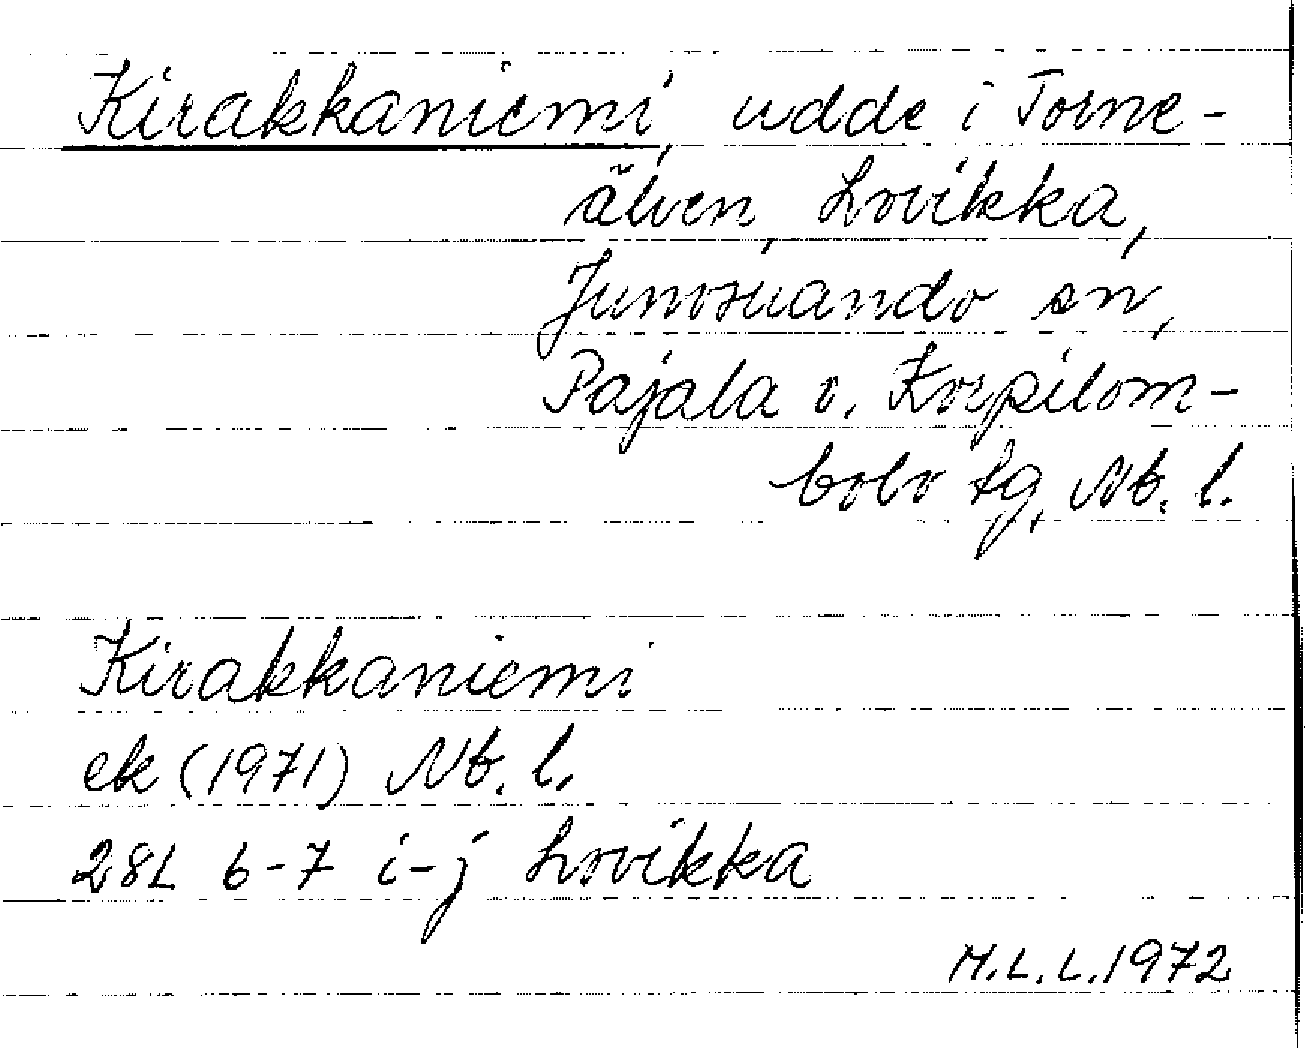 Kirakkaniemi, udde i Torne-
älven, Lovikka,
Junosuando sn,
Pajala o. Korpilom-
bolo tg, Nb. l.
Kirakkaniemi
ek (1971) Nb. l.
28L 6-7 i-j Lovikka
M.L.L. 1972